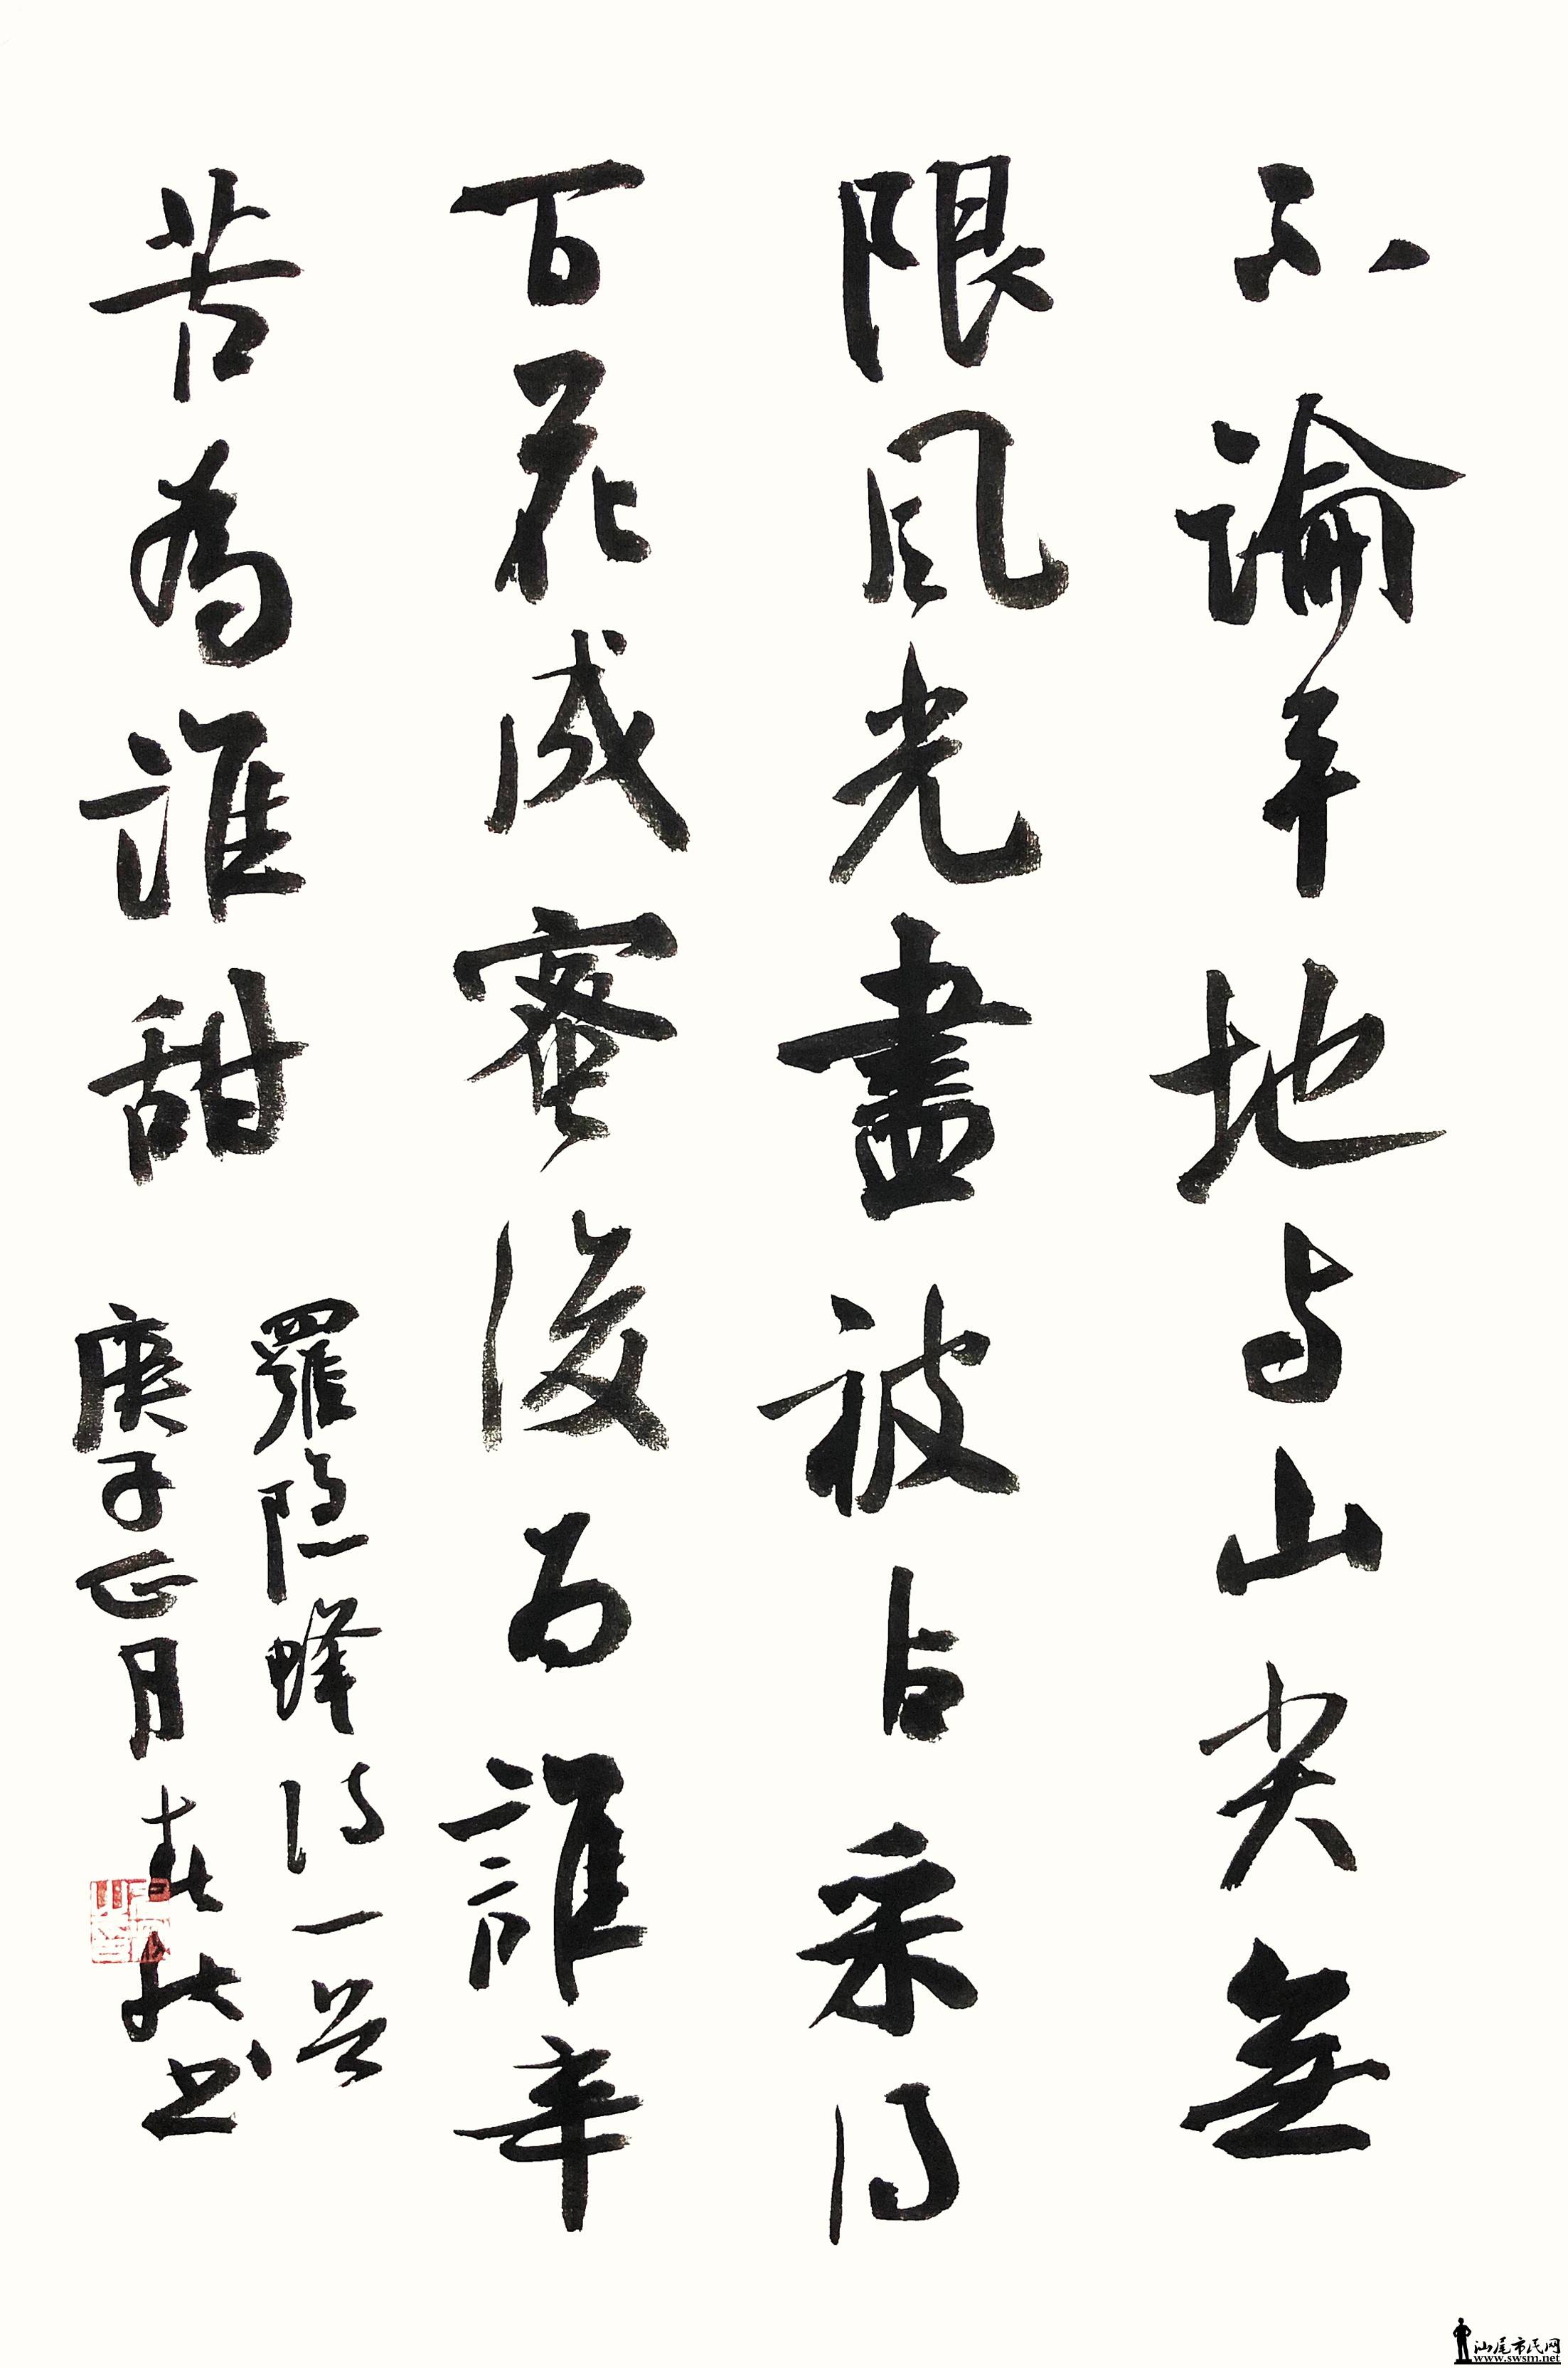 不論平地与山尖無
限風光盡被占采得
百花成蜜後为誰辛
苦為誰甜
羅隐蜂诗一首
庚子正月春
书
汕尾市民网
www.swsm.net